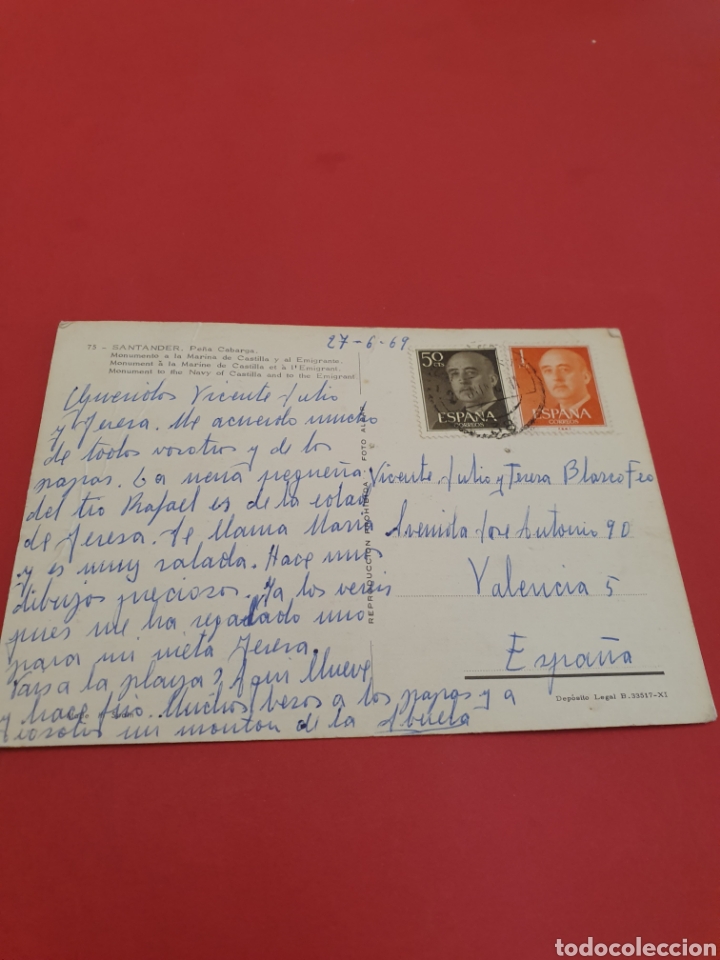 75 - SANTANDER, Peña Cabarga.
Monumento a la Marina de Castilla y al Emigrante.
Monument à la Marine de Castille et à l'Emigrant.
Monument to the Navy of Castilla and to the Emigrant.
27-6-69
Queridos Vicente Julio
y Teresa. Me acuerdo mucho
de todos vosotros y de los
papas. La nena pequeña
del tio Rafael es de la edad
de Teresa. Se llama Maria
y es muy salada. Hace unos
dibujos preciosos. Ya los vereis
pues me ha regalado uno
para mi nieta Teresa.
Vais a la playa? Aqui llueve
y hace frio. Muchos besos a los papas y a
vosotros un monton de la Abuela
REPRODUCCION PROHIBIDA FOTO
50
CTS
ESPAÑA
CORREOS
1
ESPAÑA
CORREOS
Vicente, Julio y Teresa Blasco Feo
Avenida Jose Antonio 90
Valencia 5
España
Depósito Legal B. 33517-XI
todocoleccion